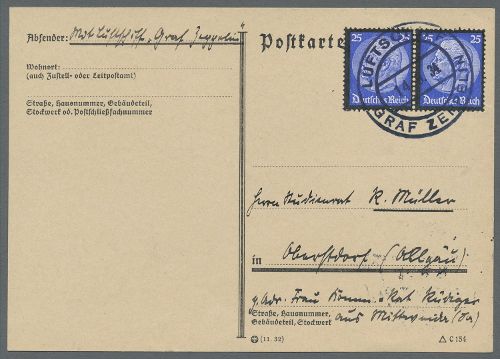 Absender: Mot Luftschiff "Graf Zeppelin"
Wohnort:
(auch Zustell- oder Leitpostamt)
Straße, Hausnummer, Gebäudeteil,
Stockwerk od. Postschließfachnummer
Postkarte
25 25
Deutsches Reich
25
Deutsches Reich
LUFTSCHIFF
GRAF ZEPPELIN
Herrn Studienrat K. Müller
in Oberstdorf (Allgäu)
z. Adr. Frau Komm.-Rat Rüdiger
aus Mittweida (Sa)
Straße, Hausnummer,
Gebäudeteil, Stockwerk
(11. 32)
C 154